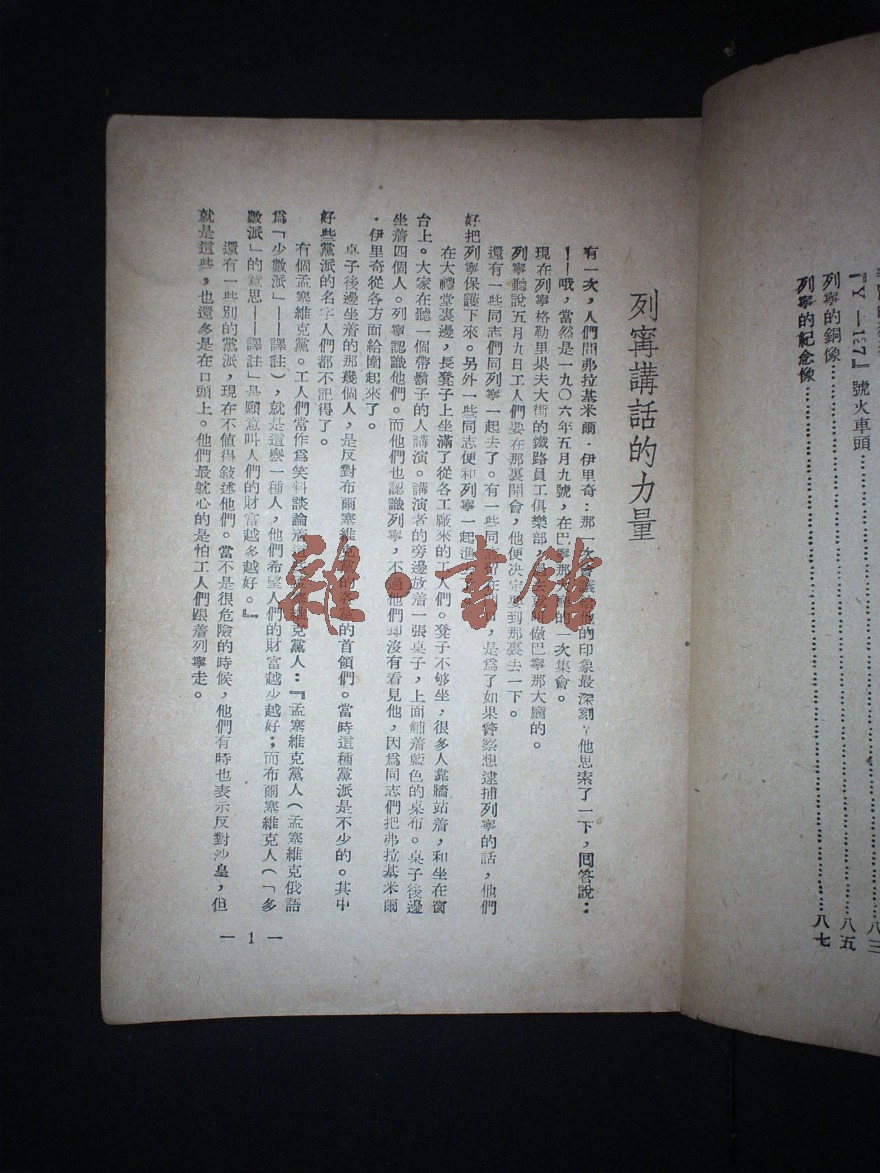 『У—127』號火車頭…………八三
列寧的銅像…………八五
列寧的紀念像…………八七
列寧講話的力量
有一次，人們問弗拉基米爾·伊里奇：那一次 他的印象最深刻？他思索了一下，回答說：
——哦，當然是一九〇六年五月九號，在巴寧那 的一次集會。
現在列寧格勒里果夫大街的鐵路員工俱樂部， 叫做巴寧那大廳的。
列寧聽說五月九日工人們要在那裏開會，他便決定要到那裏去一下。
還有一些同志們同列寧一起去了。有一些同 ，是爲了如果警察想逮捕列寧的話，他們
好把列寧保護下來。另外一些同志便和列寧一起進
在大禮堂裏邊，長凳子上坐滿了從各工廠來的工人們。凳子不够坐，很多人靠牆站着，和坐在窗
台上。大家在聽一個帶鬍子的人講演。講演者的旁邊放着一張桌子，上面鋪着藍色的桌布。桌子後邊
坐着四個人。列寧認識他們。而他們也認識列寧，不過他們却沒有看見他，因爲同志們把弗拉基米爾
·伊里奇從各方面給圍起來了。
桌子後邊坐着的那幾個人，是反對布爾塞維克 的首領們。當時這種黨派是不少的。其中
好些黨派的名字人們都不記得了。
有個孟塞維克黨。工人們當作爲笑料談論着這 維克黨人：『孟塞維克黨人（孟塞維克俄語
爲「少數派」——譯註），就是這麽一種人，他們希望人們的財富越少越好；而布爾塞維克人（「多
數派」的意思——譯註）是願意叫人們的財富越多越好。』
還有一些別的黨派，現在不值得敍述他們。當不是很危險的時候，他們有時也表示反對沙皇，但
就是這些，也還多是在口頭上。他們最躭心的是怕工人們跟着列寧走。
— 1 —
雜·書館